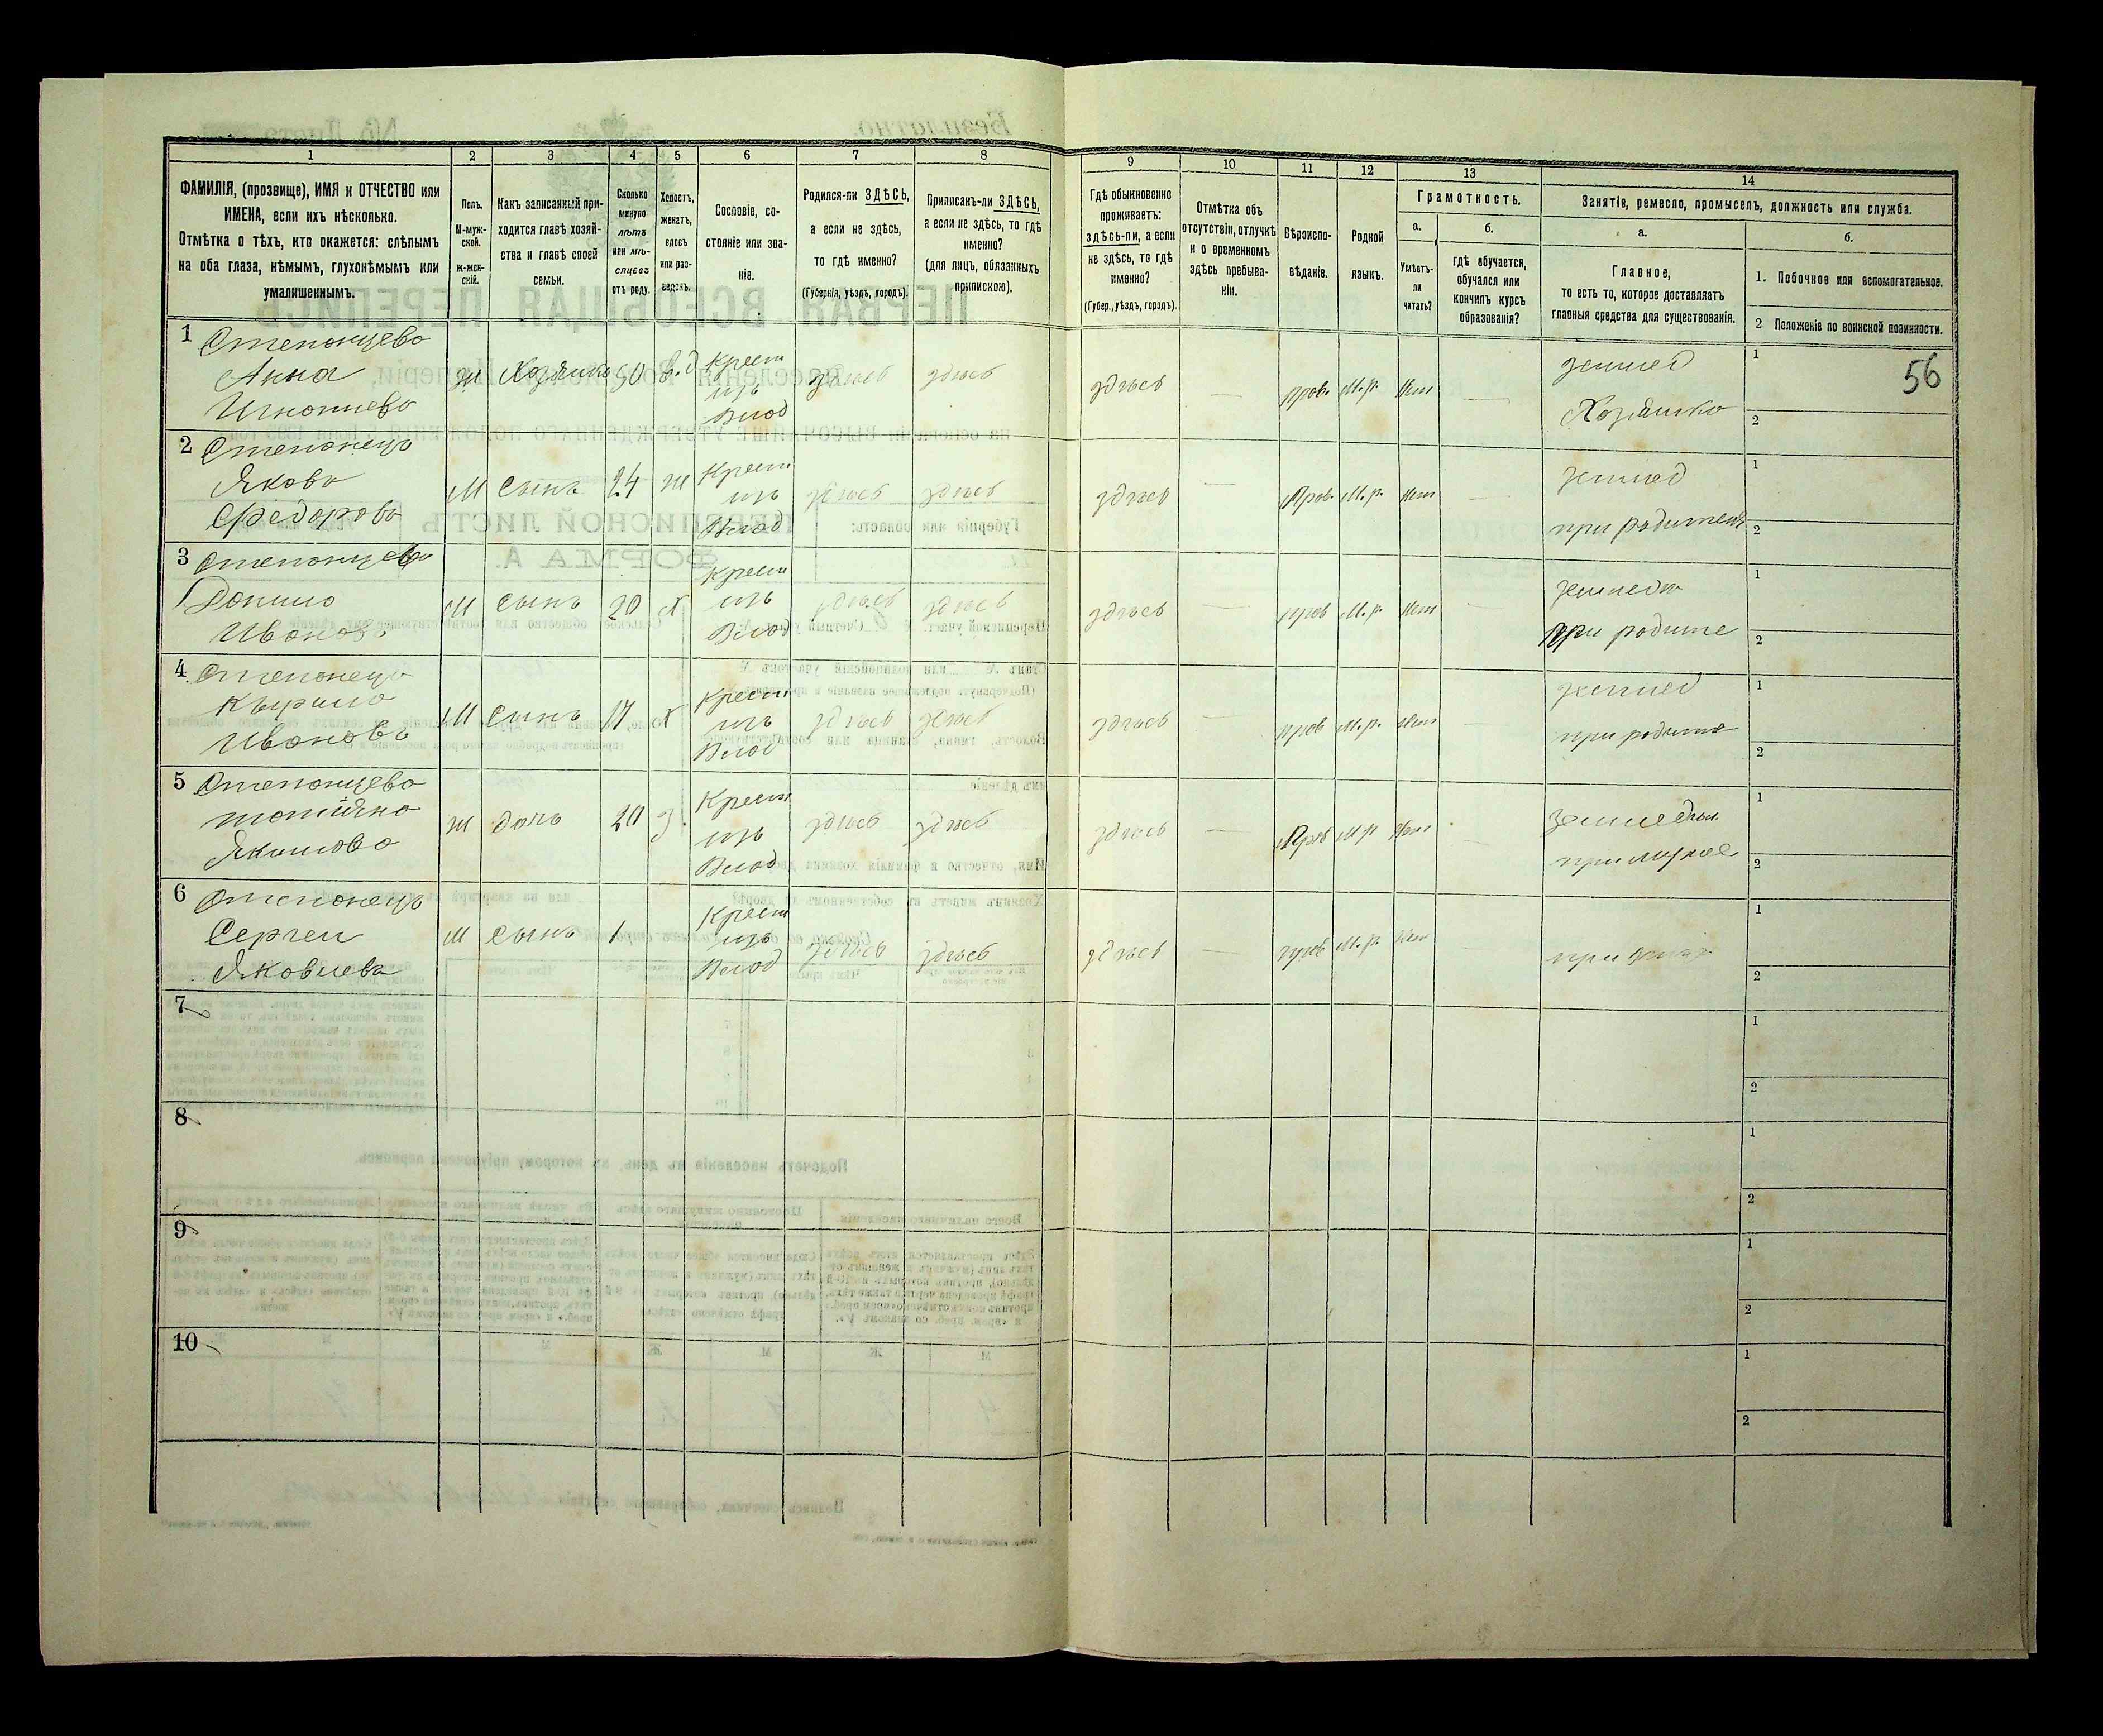 1 2 3 4 5 6 7 8 9 10 11 12 13 14
ФАМИЛІЯ, (прозвище), ИМЯ и ОТЧЕСТВО или
ИМЕНА, если ихъ нѣсколько.
Отмѣтка о тѣхъ, кто окажется: слѣпымъ
на оба глаза, нѣмымъ, глухонѣмымъ или
умалишеннымъ.
Полъ.
М-муж-
ской.
Ж-жен-
скій.
Какъ записанный при-
ходится главѣ хозяй-
ства и главѣ своей
семьи.
Сколько
минуло
лѣтъ
или мѣ-
сяцевъ
отъ роду.
Холостъ,
женатъ,
вдовъ
или раз-
веденъ.
Сословіе, со-
стояніе или зва-
ніе.
Родился-ли ЗДѢСЬ,
а если не здѣсь,
то гдѣ именно?
(Губернія, уѣздъ, городъ).
Приписанъ-ли ЗДѢСЬ,
а если не здѣсь, то гдѣ
именно?
(для лицъ, обязанныхъ
припискою).
Гдѣ обыкновенно
проживаетъ:
здѣсь-ли, а если
не здѣсь, то гдѣ
именно?
(Губер., уѣздъ, городъ).
Отмѣтка объ
отсутствіи, отлучкѣ
и о временномъ
здѣсь пребыва-
ніи.
Вѣроиспо-
вѣданіе.
Родной
языкъ.
Грамотность.
а.
Умѣетъ-
ли
читать?
б.
гдѣ обучается,
обучался или
кончилъ курсъ
образованія?
Занятіе, ремесло, промыселъ, должность или служба.
а.
Главное,
то есть то, которое доставляетъ
главныя средства для существованія.
б.
1. Побочное или вспомогательное.
2 Положеніе по воинской повинности.
56
1 Степонцева
Анна
ж Хозяйка 50 в.д Крест изъ здѣсь здѣсь здѣсь — прав. М.р. Нет —
Хозяйка
1
2
2 Степонецъ
Яковъ
Федоровъ
М Сынъ 24 ж Крест изъ здѣсь здѣсь здѣсь — Прав. М.р. Нет —
при родител
1
2
3
Данило
Ивановъ
М Сынъ 20 х Крест изъ здѣсь здѣсь здѣсь — прав М.р. Нет —
при родите
1
2
4 Степонецъ
Кырило
Ивановъ
М Сынъ 17 х Крест изъ здѣсь здѣсь здѣсь прав М.р. Нет —
1
2
5 Степонцева
Якимова
ж дочь 20 з. Крест изъ здѣсь здѣсь здѣсь — Прав М.р Нет
при мужѣ
1
2
6 Степонецъ
Сергей
Яковлевъ
М Сынъ 1 Крест изъ здѣсь здѣсь здѣсь — прав М.р. Нет
1
2
7
1
2
8
1
2
9
1
2
10
1
2